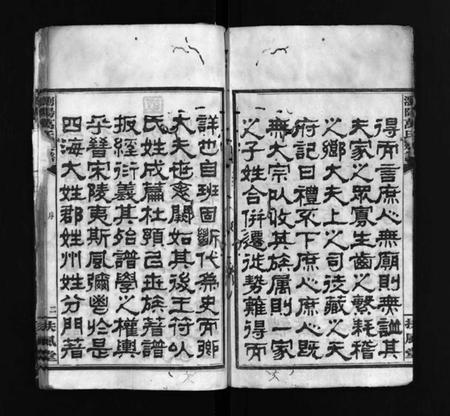 得而言庶人無廟則無謚其
夫家之眾寡生齒之繁耗稽
之鄉大夫上之司徒藏之天
府記曰禮不下庶人庶人既
無大宗以收其族屬則一家
之子姓合併遷徙勢難得而
詳也自班固斷代為史而卿
大夫世系闕如其後王符以
氏姓成篇杜預以世族著譜
扳經衍義其殆譜學之權輿
乎晉宋陵夷斯風彌於是
四海大姓郡姓州姓分門著
序
二
扶風堂